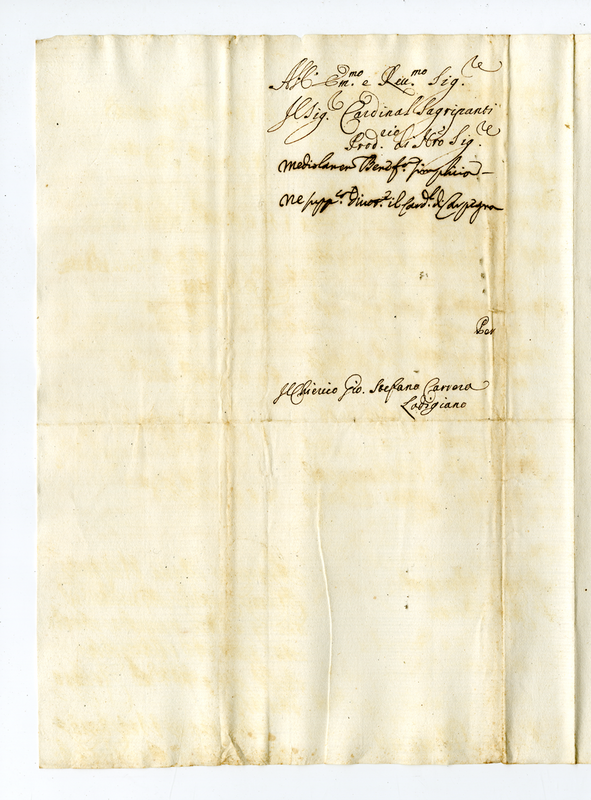 All' Em.mo e Reu.mo Sig.re
Il Sig.r Cardinal Sagripanti
Prod.rio di N'ro Sig.re
Mediolanen Benef.
Ne supp.ca il Card.l di Carpegna
Per
Il Chierico Gio. Stefano Carrera
Lodigiano